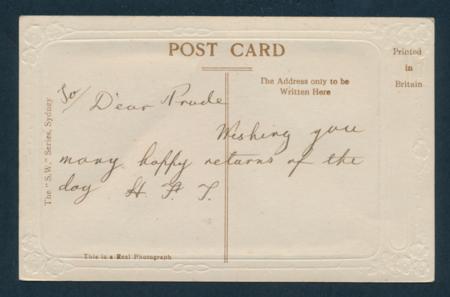 POST CARD
Printed
in
Britain
The Address only to be
Written Here
The "S.W." Series, Sydney
To/ Dear Prude
Wishing you
many happy returns of the
day H. F. T.
This is a Real Photograph